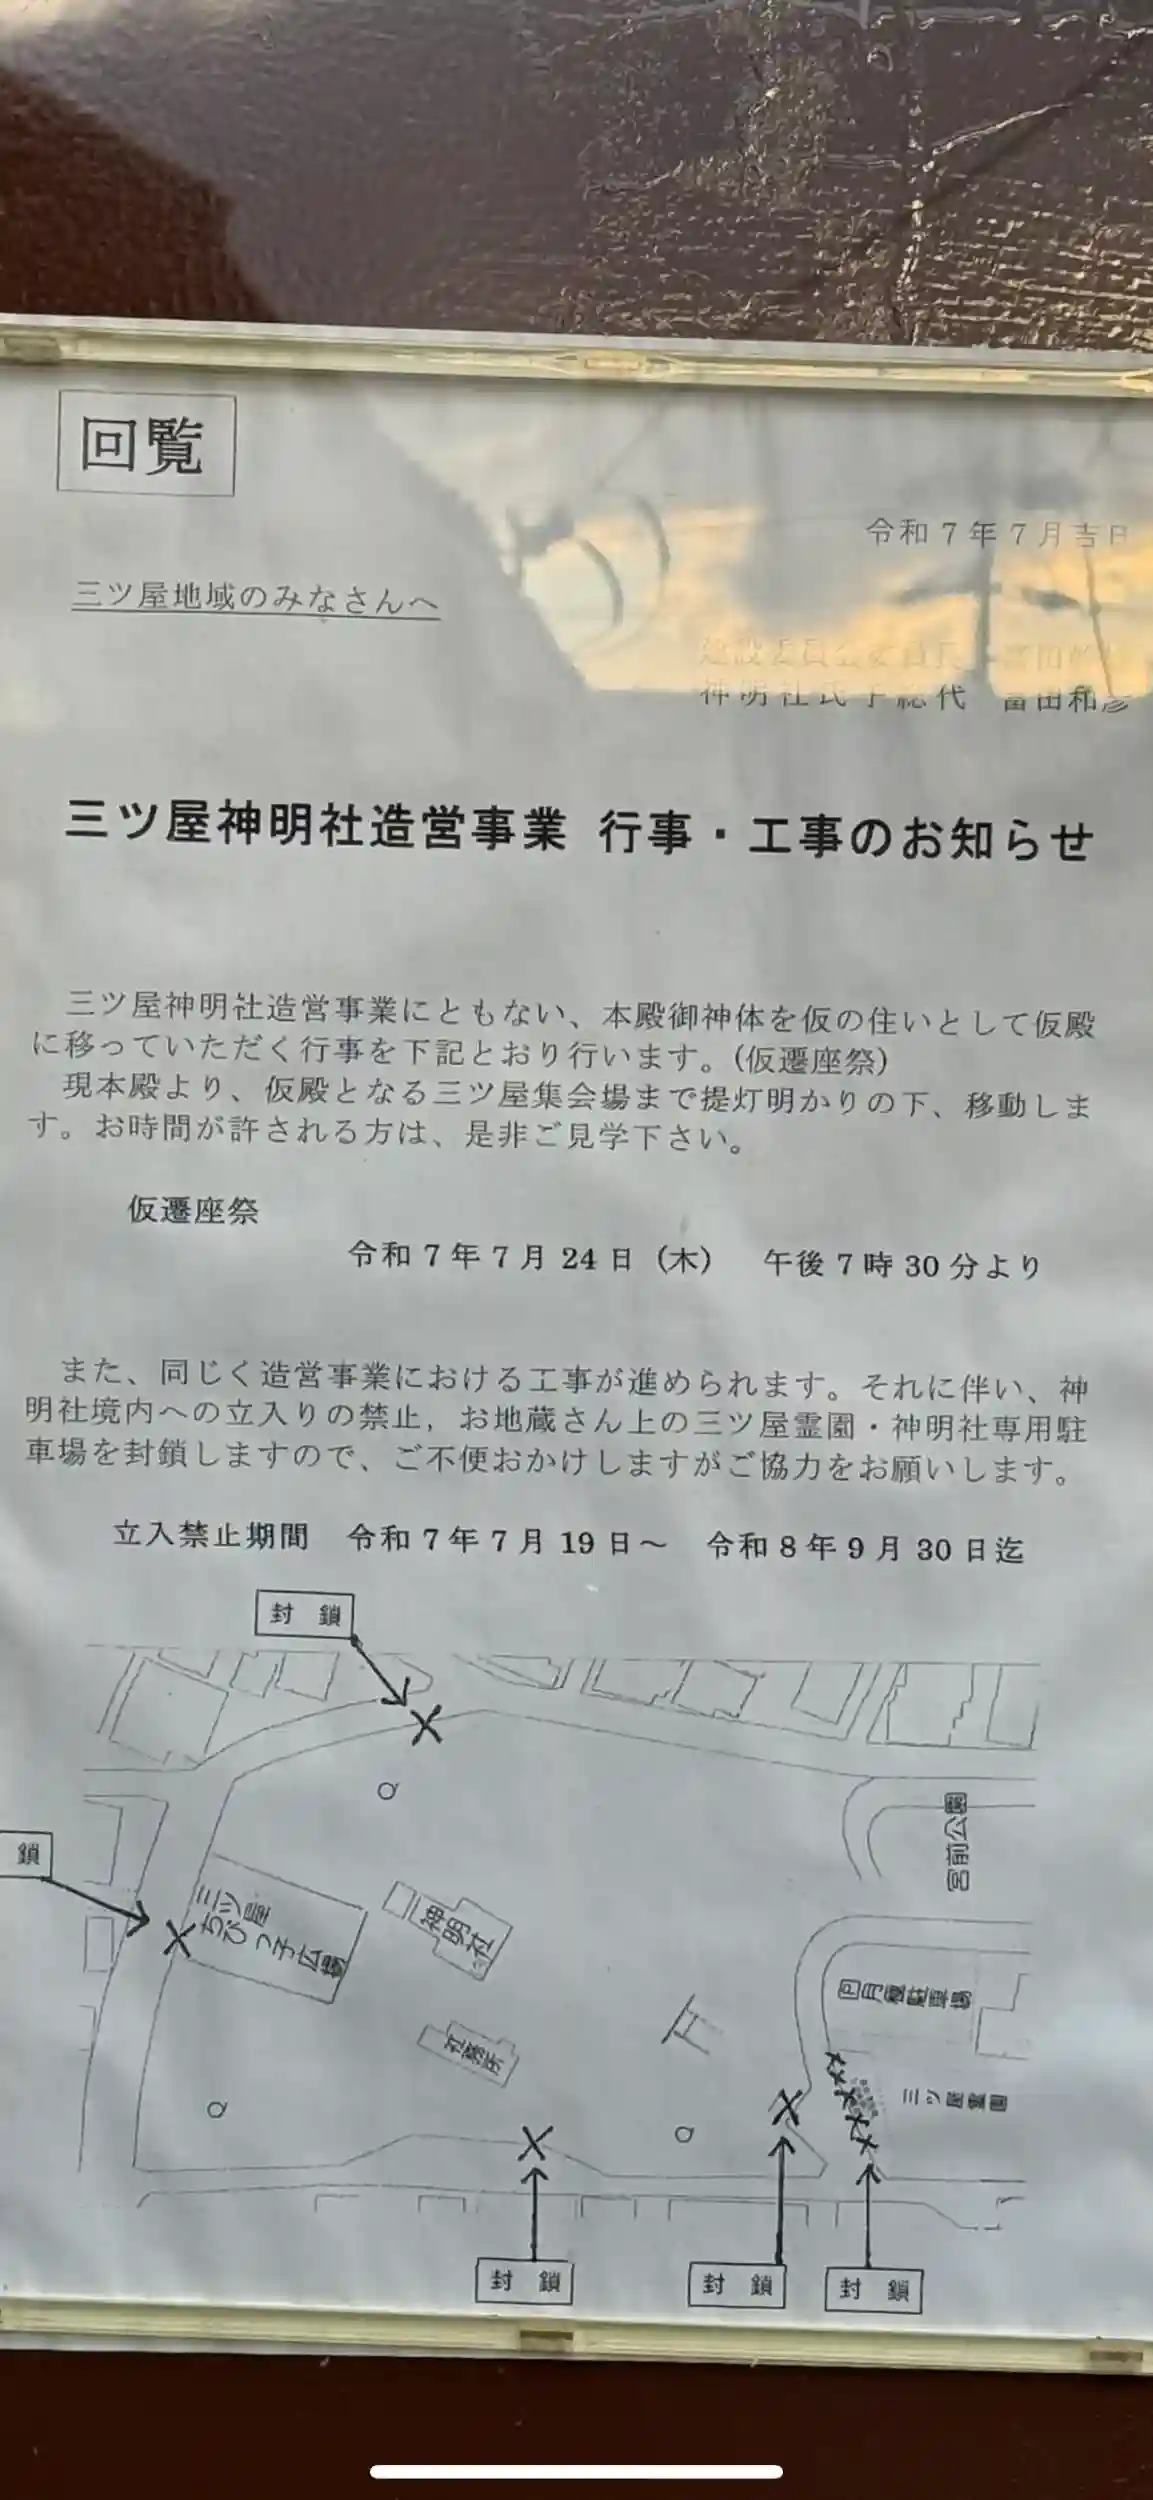 回覧
令和７年７月吉日
三ツ屋地域のみなさんへ
建設委員会委員長
神明社氏子総代　富田和彦
三ツ屋神明社造営事業 行事・工事のお知らせ
三ツ屋神明社造営事業にともない、本殿御神体を仮の住いとして仮殿
に移っていただく行事を下記とおり行います。(仮遷座祭)
現本殿より、仮殿となる三ツ屋集会場まで提灯明かりの下、移動しま
す。お時間が許される方は、是非ご見学下さい。
仮遷座祭
令和７年７月 24 日（木）　午後７時 30 分より
また、同じく造営事業における工事が進められます。それに伴い、神
明社境内への立入りの禁止，お地蔵さん上の三ツ屋霊園・神明社専用駐
車場を封鎖しますので、ご不便おかけしますがご協力をお願いします。
立入禁止期間　令和７年７月 19 日～　令和８年９月 30 日迄
封　鎖
鎖
宮前公園
三ツ屋
ちびっ子広場
神明社
月極駐車場
社務所
三ツ屋霊園
封　鎖
封　鎖
封　鎖